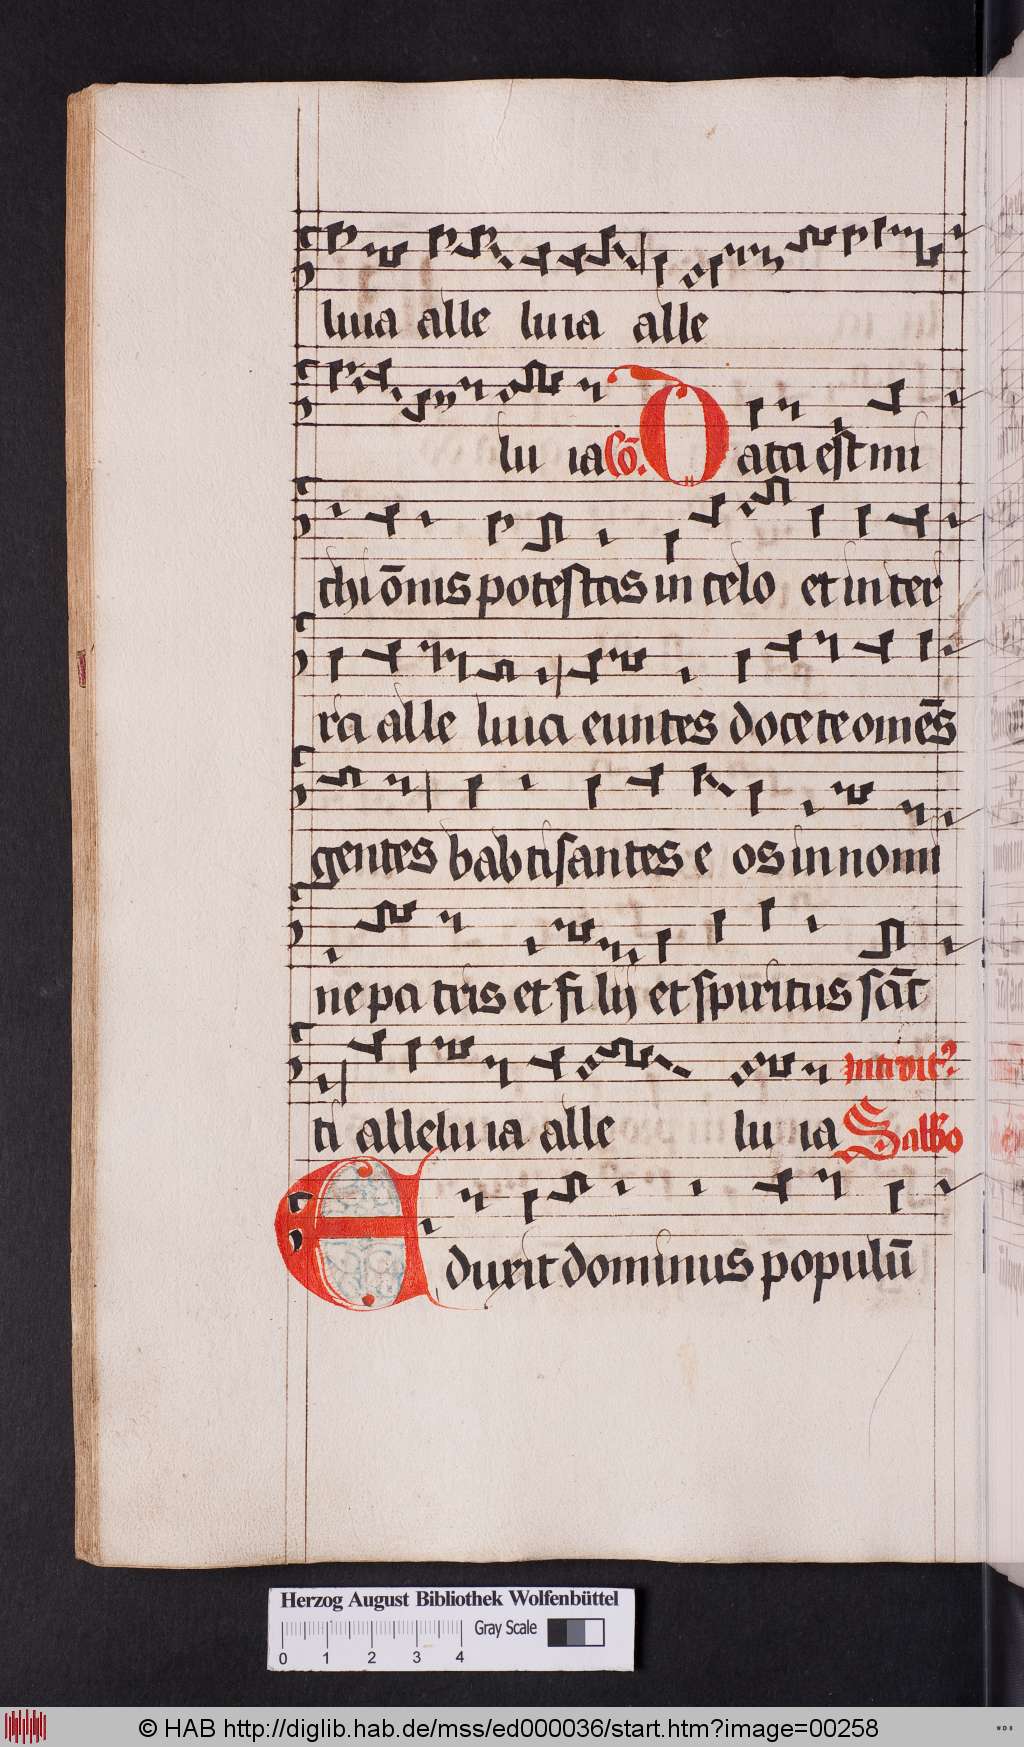 luia alle luia alle
lu ia Cō. Data est mi
chi ōnis potestas in celo et in ter
ra alle luia euntes docete omēs
gentes babtisantes e os in nomi
ne pa tris et fi lij et spiritus sāt
ti alleluia alle lu ia
Sabbo
Eduxit dominus populū
Herzog August Bibliothek Wolfenbüttel
Gray Scale
0 1 2 3 4
© HAB http://diglib.hab.de/mss/ed000036/start.htm?image=00258